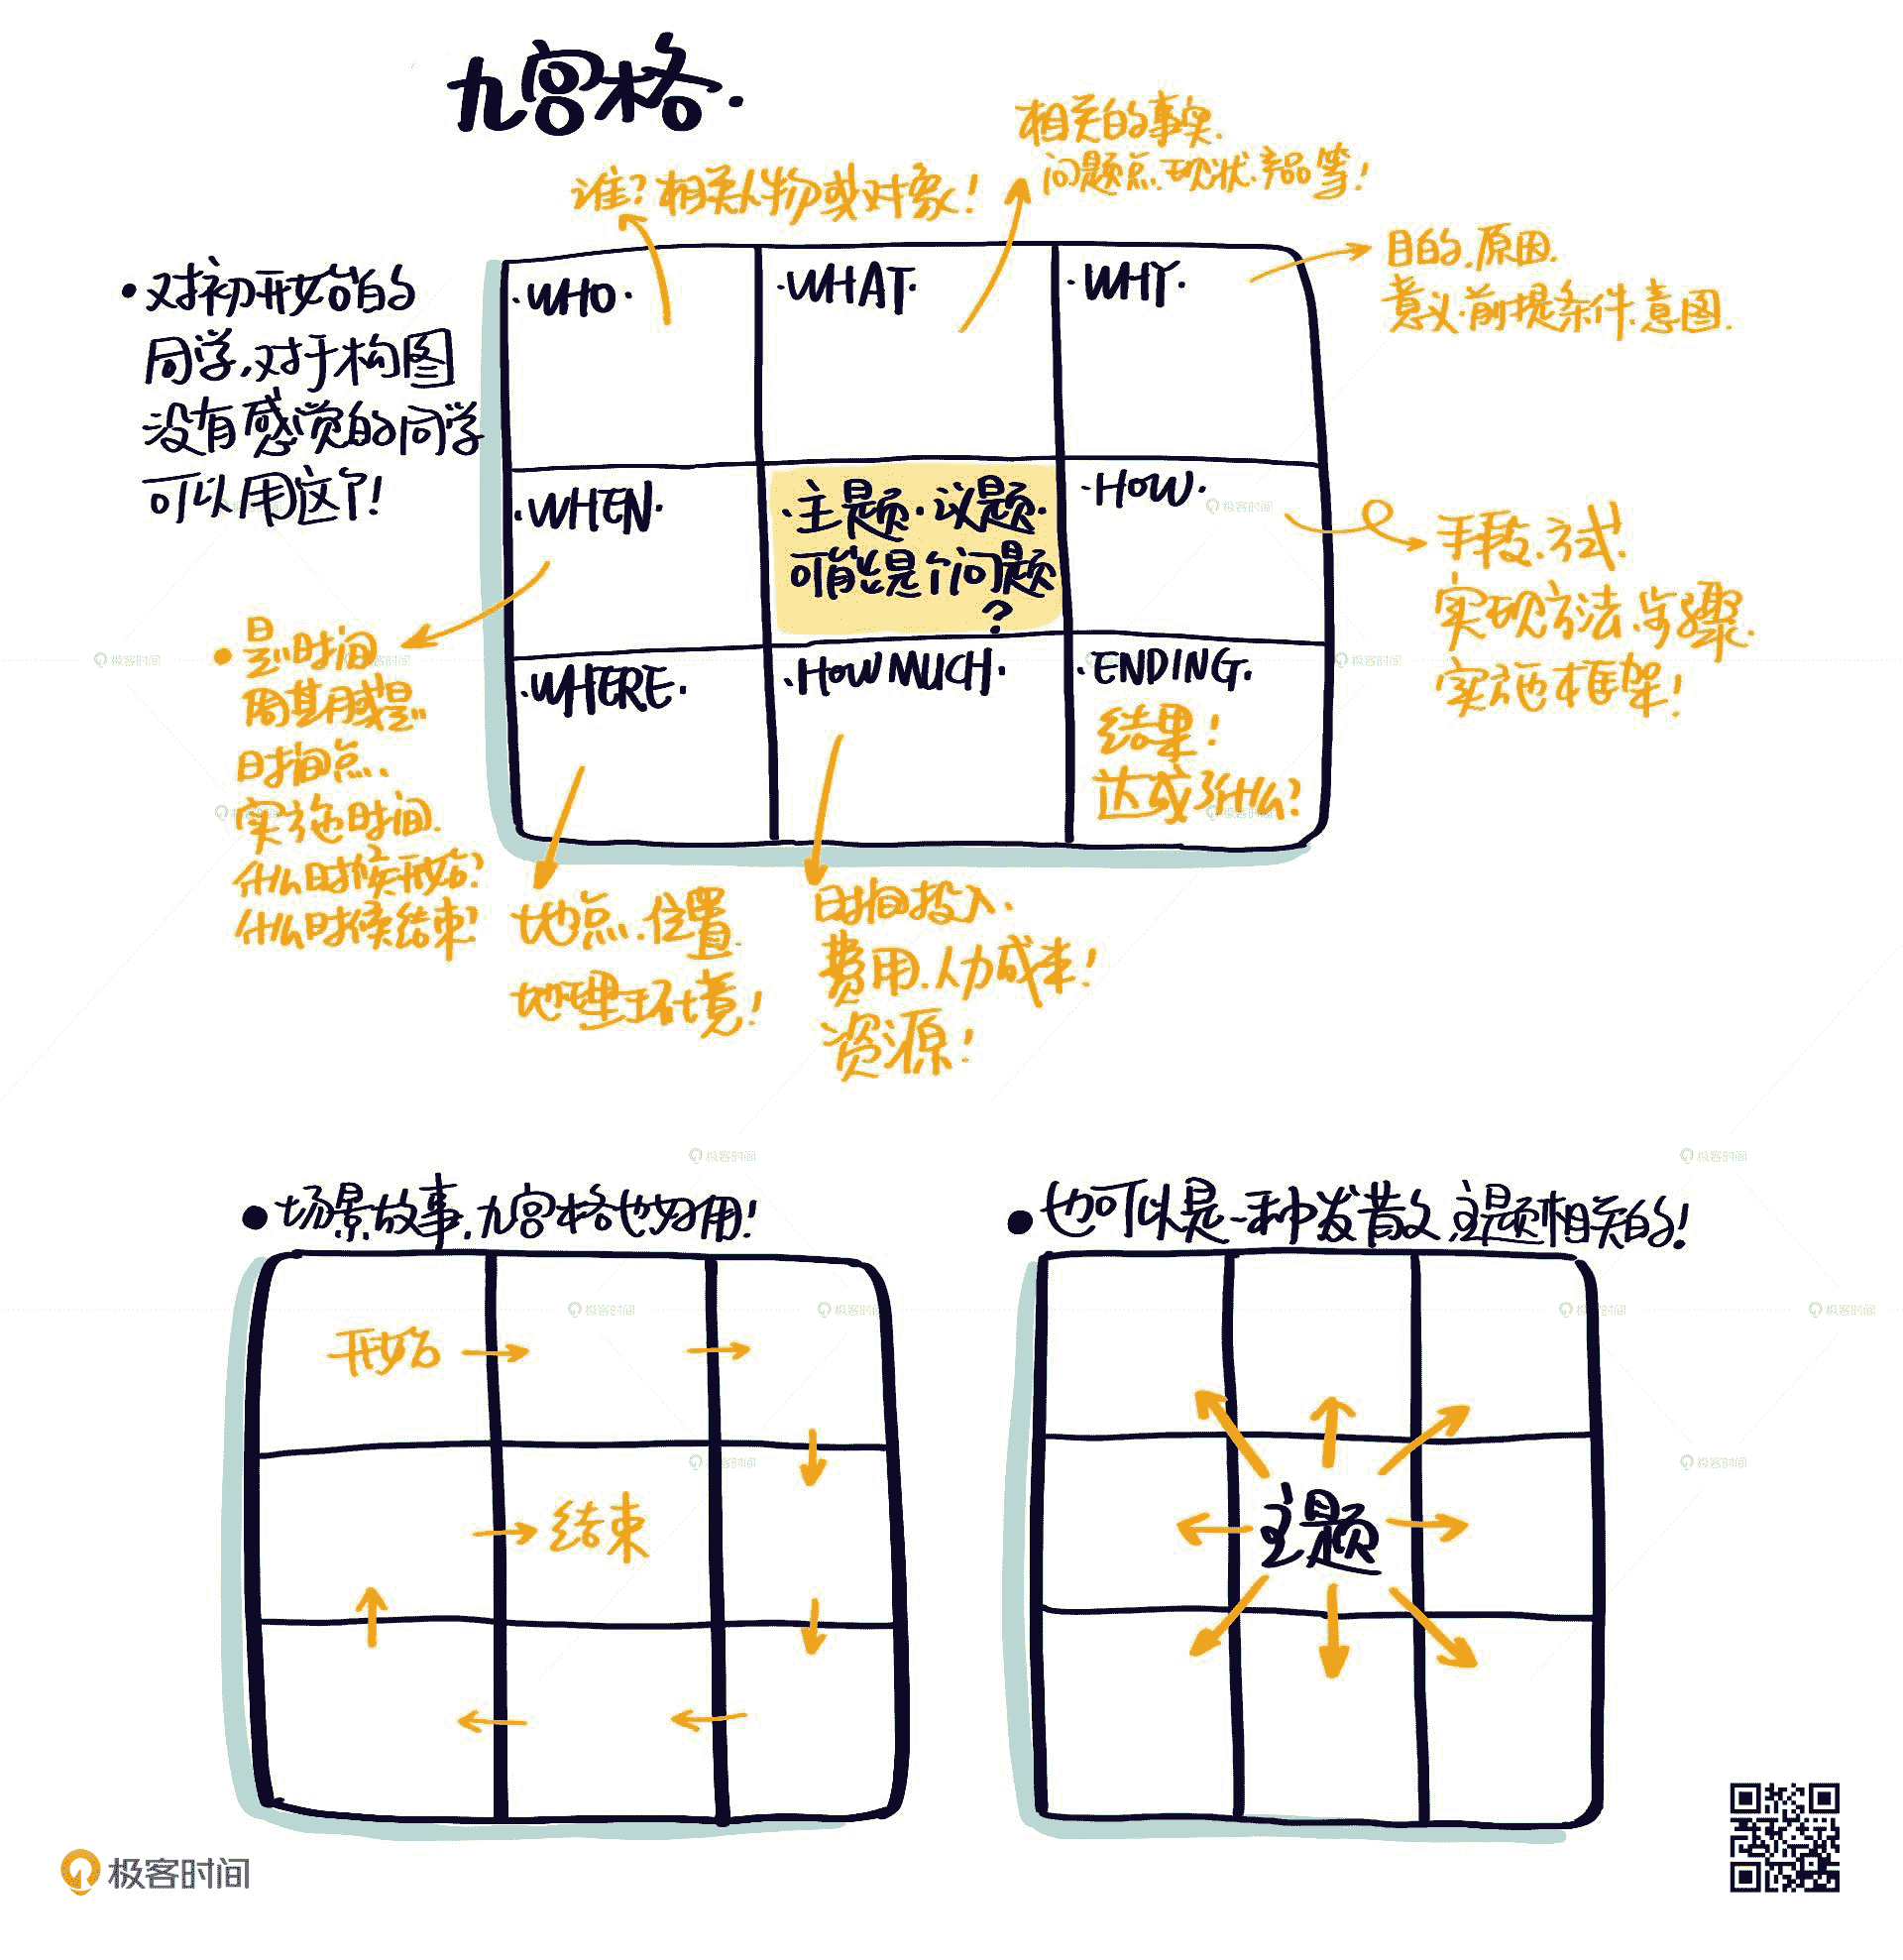 九宫格.
相关的事实.
问题点.现状.产品等!
谁?相关人物或对象!
目的.原因.
意义.前提条件.意图.
•对初开始的
同学,对于构图
没有感觉的同学
可以用这个!
·WHO·
·WHAT·
·WHY·
·WHEN·
·主题·议题·
可能是个问题
?
·HOW·
手段.方式.
实现方法.步骤.
实施框架!
·WHERE·
·HOW MUCH·
·ENDING.
结果!
达成了什么?
•是时间
周期或是
时间点.
实施时间.
什么时候开始?
什么时候结束?
地点.位置.
地理环境!
时间投入.
费用.人力成本!
资源!
•场景故事.九宫格也好用!
开始
结束
•也可以是一种发散.主题相关的!
主题
极客时间